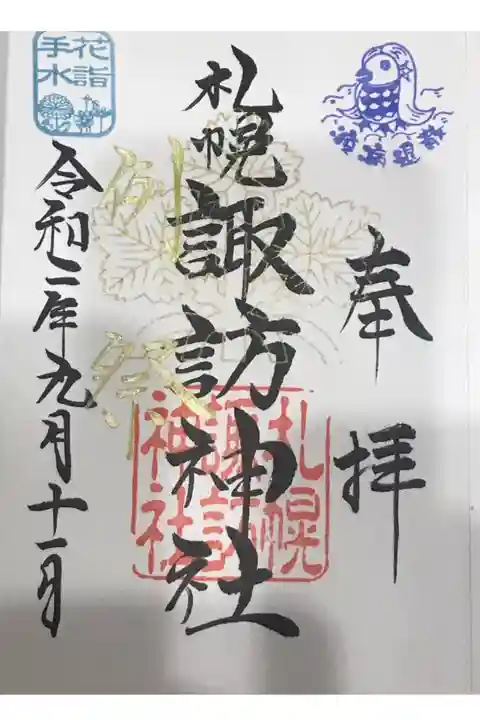 奉拝
疫病退散
札幌諏訪神社
札幌
諏訪
神社
例祭
花詣
手水
令和二年九月十一日